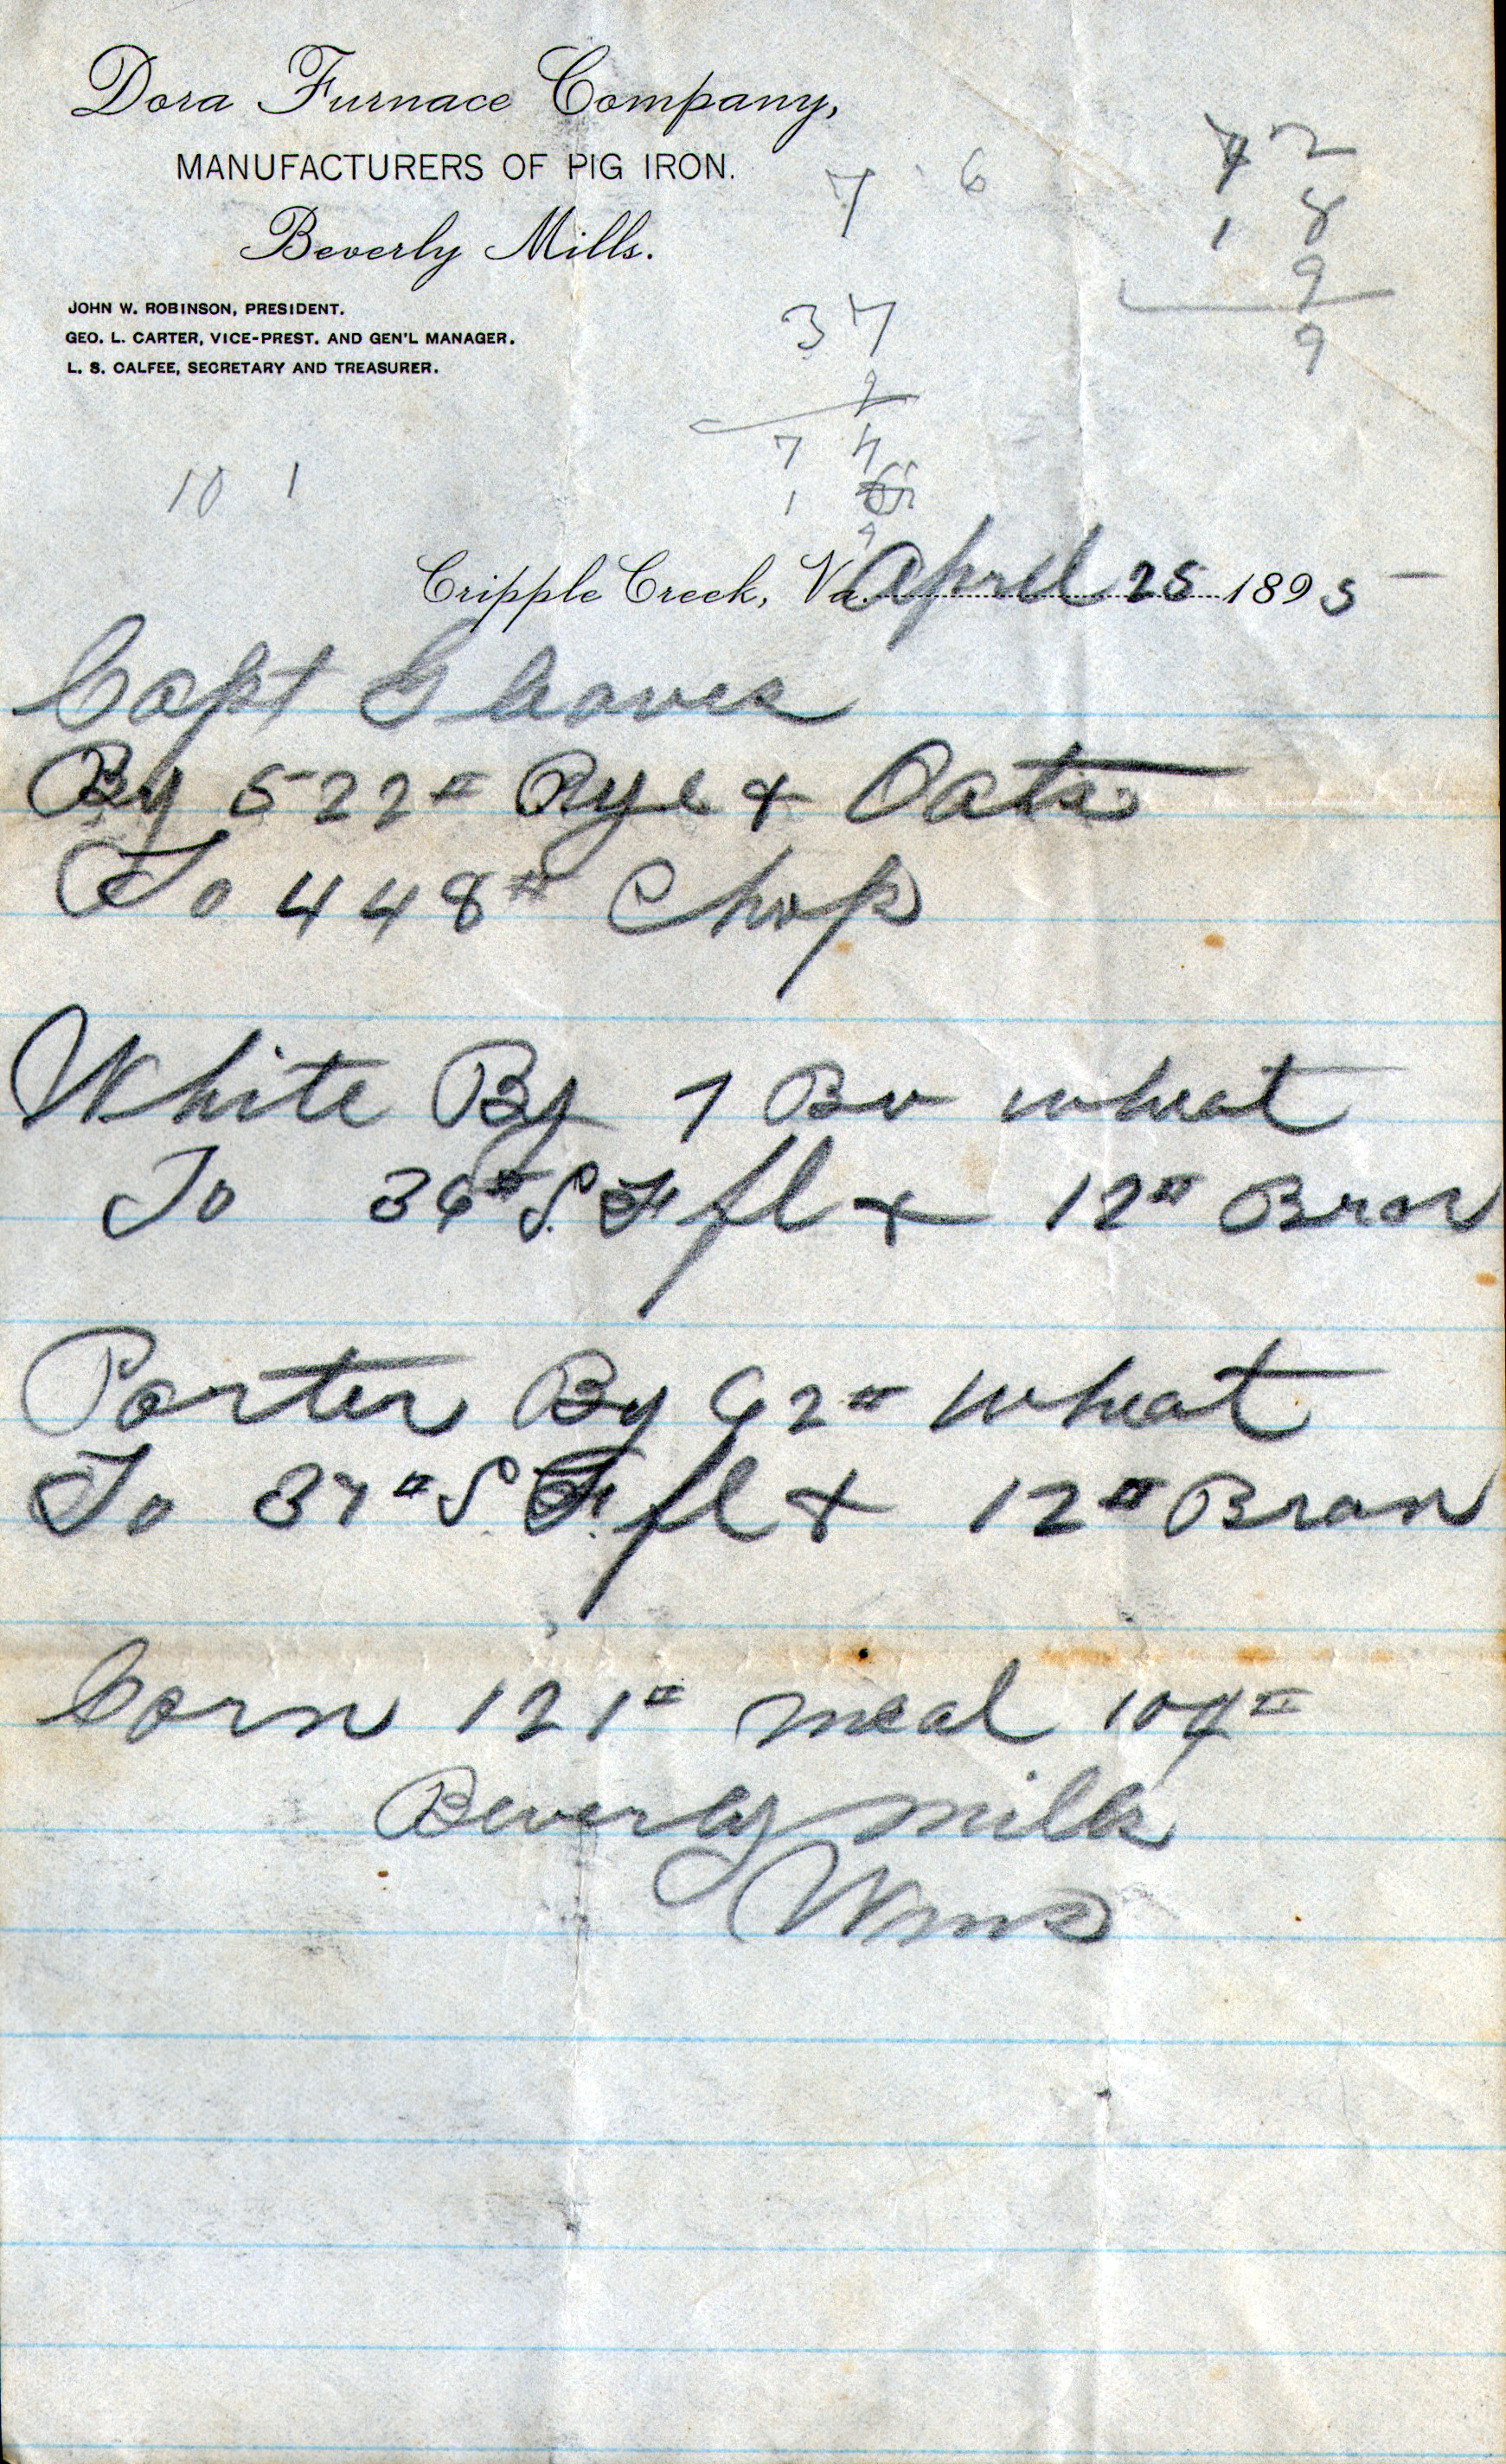 Dora Furnace Company,
MANUFACTURERS OF PIG IRON.
Beverly Mills.
JOHN W. ROBINSON, PRESIDENT.
GEO. L. CARTER, VICE-PREST. AND GEN'L MANAGER.
L. S. CALFEE, SECRETARY AND TREASURER.
7 6
7 2
1 8
9
9
3 7
2
7 4
1
10 1
Cripple Creek, Va. April 25 1895
Capt Gleaves
By 522# Rye & Oats
To 448# Chop
White By 1 Bu wheat
To 36# S.F. fl & 12# Bran
Porter By 62# Wheat
To 37# S.F. fl & 12# Bran
Corn 121# meal 104#
Beverly Mills
Wms